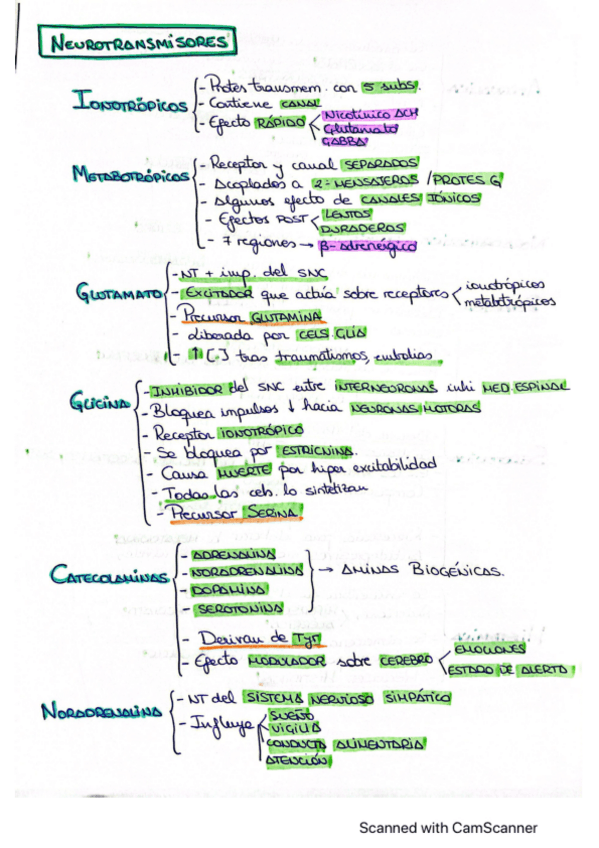 NEUROTRANSMISORES
IONOTRÓPICOS
- Protes transmem. con 5 subs.
- Contiene CANAL
- Efecto RÁPIDO
Nicotínico ACH
Glutamato
GABBA
METABOTRÓPICOS
- Receptor y canal SEPARADOS
- Acoplados a 2º MENSAJEROS / PROTES G
- Algunos efecto de CANALES IÓNICOS
- Efectos POST
LENTOS
DURADEROS
- 7 regiones → β-adrenérgico
GLUTAMATO
- NT + imp. del SNC
- EXCITADOR que actúa sobre receptores
ionotrópicos
metabotrópicos
- Precursor GLUTAMINA
- liberada por CELS. GLÍA
- ↑ [ ] tras traumatismos, embolias
GLICINA
- INHIBIDOR del SNC entre INTERNEURONAS inhi MED. ESPINAL
- Bloquea impulsos ↓ hacia NEURONAS MOTORAS
- Receptor IONOTRÓPICO
- Se bloquea por ESTRICNINA.
- Causa MUERTE por hiper excitabilidad
- Todas las cels. lo sintetizan
- Precursor SERINA
CATECOLAMINAS
- ADRENALINA
- NORADRENALINA
- DOPAMINA
- SEROTONINA
→ AMINAS BIOGÉNICAS.
- Derivan de Tyr
- Efecto MODULADOR sobre CEREBRO
EMOCIONES
ESTADO DE ALERTA
NORADRENALINA
- NT del SISTEMA NERVIOSO SIMPÁTICO
- Influye
SUEÑO
VIGILIA
CONDUCTA ALIMENTARIA
ATENCIÓN
Scanned with CamScanner